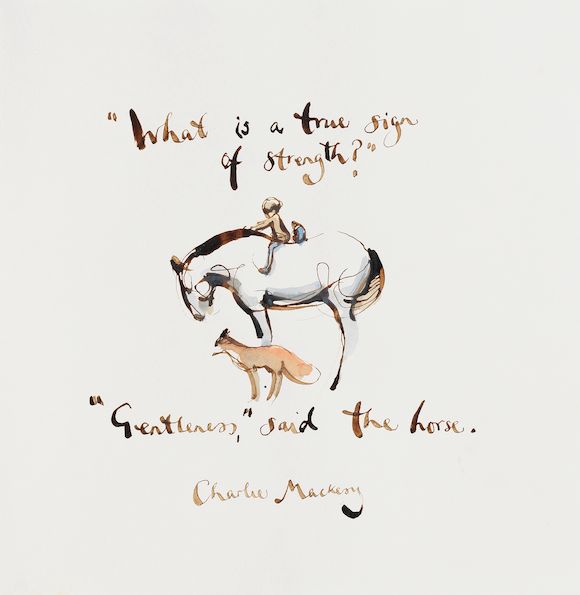 "What is a true sign
of strength?"
"Gentleness," said the horse.
Charlie Mackesy